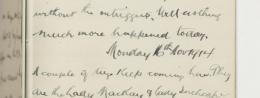 without the intrigues. Well nothing
much more happened today.
Monday 16th Nov 1914
A couple of keep coming here. They
are the Lady Mackay & Lady